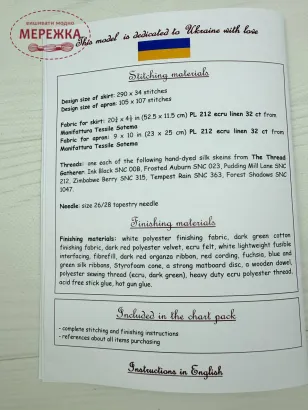 вишивати модно
МЕРЕЖКА
This model is dedicated to Ukraine with love
Stitching materials
Design size of skirt: 290 x 34 stitches
Design size of apron: 105 x 107 stitches
Fabric for skirt: 20¾ x 4½ in (52.5 x 11.5 cm) PL 212 ecru linen 32 ct from
Manifattura Tessile Sotema
Fabric for apron: 9 x 10 in (23 x 25 cm) PL 212 ecru linen 32 ct from
Manifattura Tessile Sotema
Threads: one each of the following hand-dyed silk skeins from The Thread
Gatherer: Ink Black SNC 008, Frosted Auburn SNC 023, Pudding Mill Lane SNC
212, Zimbabwe Berry SNC 315, Tempest Rain SNC 363, Forest Shadows SNC
1047.
Needle: size 26/28 tapestry needle
Finishing materials
Finishing materials: white polyester finishing fabric, dark green cotton
finishing fabric, dark red polyester velvet, ecru felt, white lightweight fusible
interfacing, fibrefill, dark red organza ribbon, red cording, fuchsia, blue and
green silk ribbons, Styrofoam cone, a strong matboard disc, a wooden dowel,
polyester sewing thread (ecru, dark green), heavy duty ecru polyester thread,
acid free stick glue, hot gun glue.
Included in the chart pack
- complete stitching and finishing instructions
- references about all items purchasing
Instructions in English